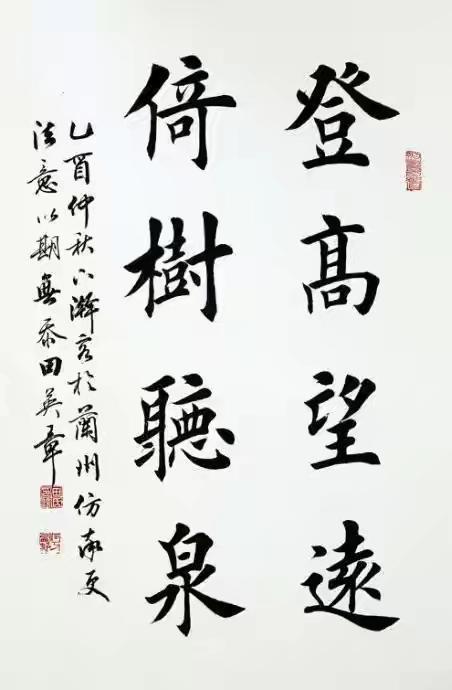 登髙望遠
倚樹聽泉
乙酉仲秋下澣客於蘭州仿率更
法意以期無忝田英章